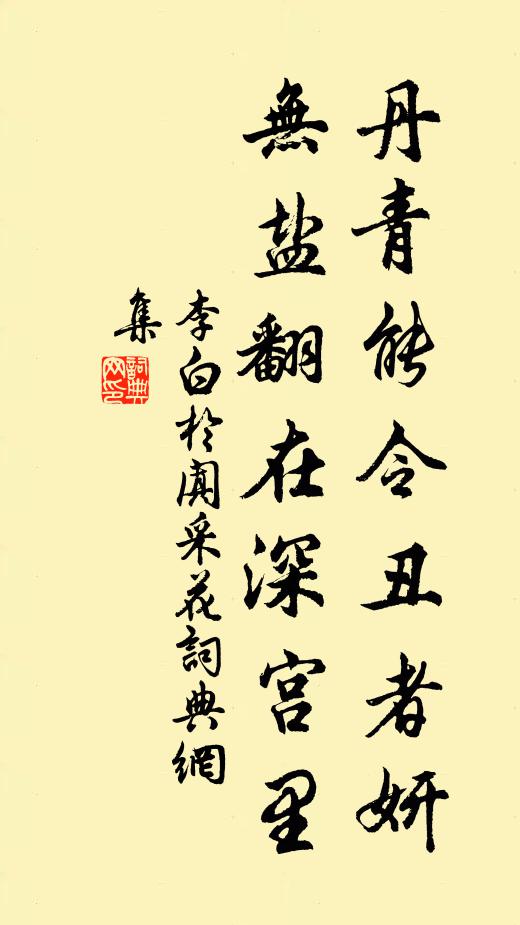 丹青能令丑者妍
無盐翻在深宫里
李白於阗采花詞典網
集
詞典
网印